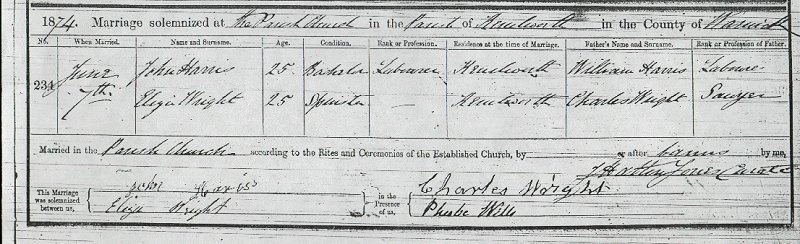 1874. Marriage solemnized at the Parish Church in the Parish of Kenilworth in the County of Warwick
No. When Married. Name and Surname. Age. Condition. Rank or Profession. Residence at the time of Marriage. Father's Name and Surname. Rank or Profession of Father.
234 June 7th John Harris 25 Bachelor Labourer Kenilworth William Harris Labourer
Eliza Wright 25 Spinster — Kenilworth Charles Wright Sawyer
Married in the Parish Church according to the Rites and Ceremonies of the Established Church, by or after banns by me,
J Hartley Jones Curate
This Marriage was solemnized between us, John Harris Eliza Wright in the Presence of us, Charles Wright Phoebe Wills